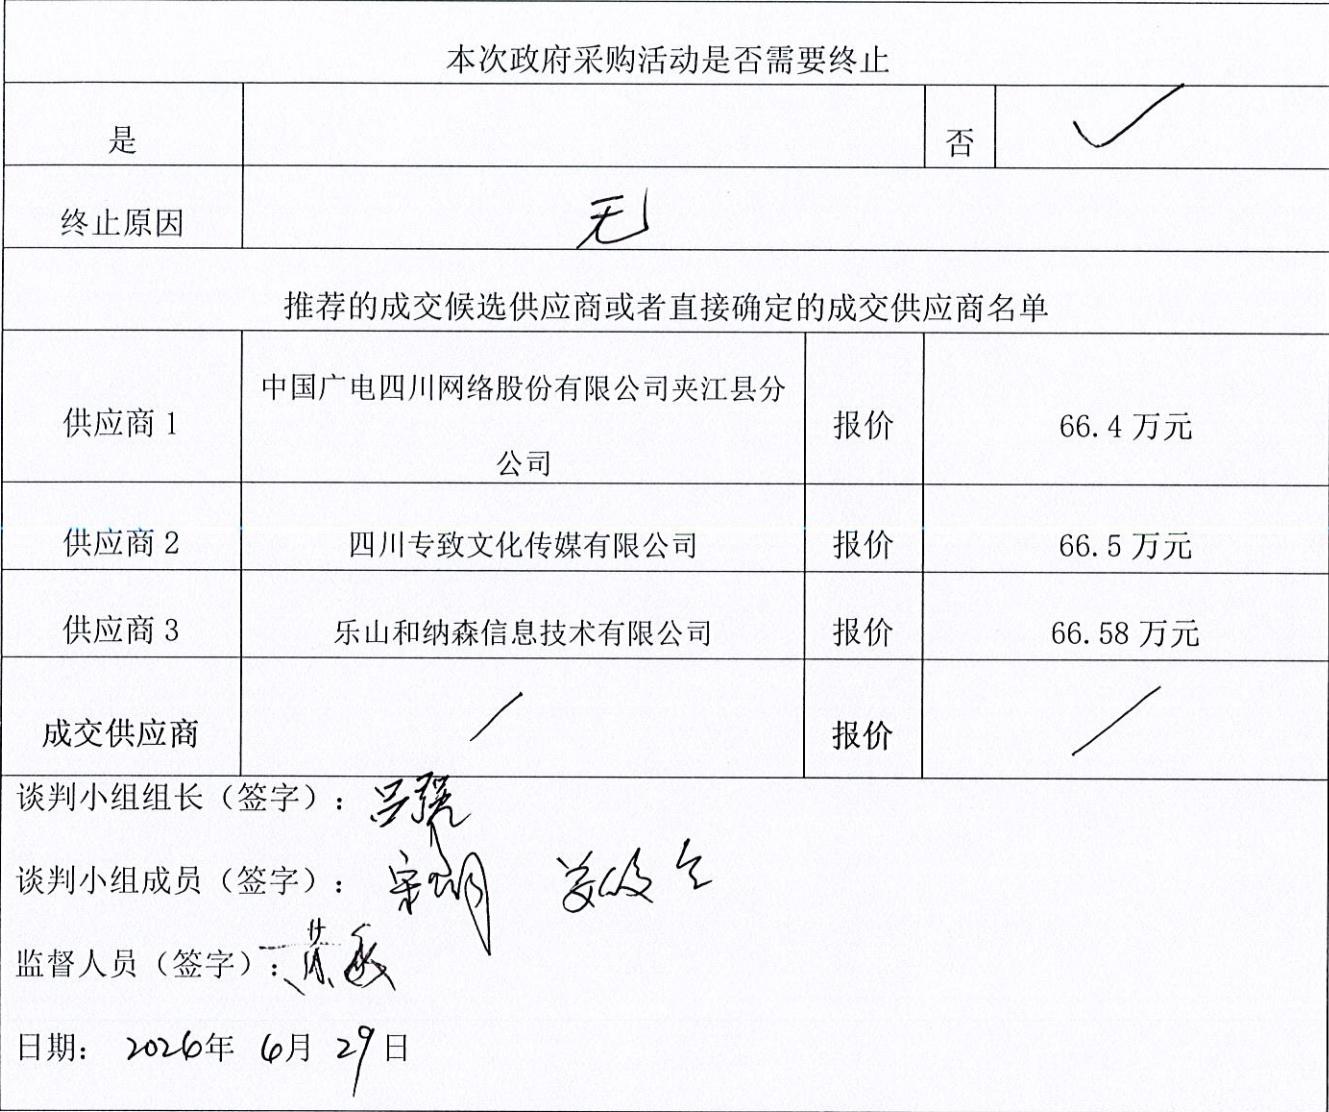 本次政府采购活动是否需要终止
是 否 ✓
终止原因 无
推荐的成交候选供应商或者直接确定的成交供应商名单
供应商 1 中国广电四川网络股份有限公司夹江县分公司 报价 66.4 万元
供应商 2 四川专致文化传媒有限公司 报价 66.5 万元
供应商 3 乐山和纳森信息技术有限公司 报价 66.58 万元
成交供应商 / 报价 /
谈判小组组长（签字）：
谈判小组成员（签字）：
监督人员（签字）：
日期： 2026年 6月 29日